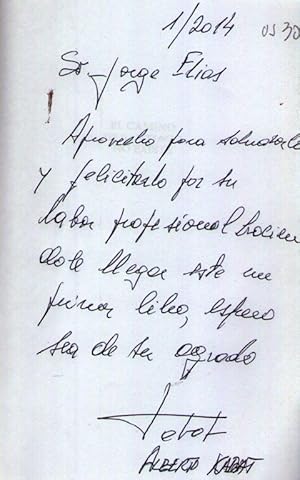 1/2014
OS 30
Sr Jorge Elias
Aprovecho para saludarle
y felicitarlo por su
labor profesional hacien
dole llegar este mi
primer libro, espero
sea de su agrado
Kabat
ALBERTO KABAT
EL CAMINO